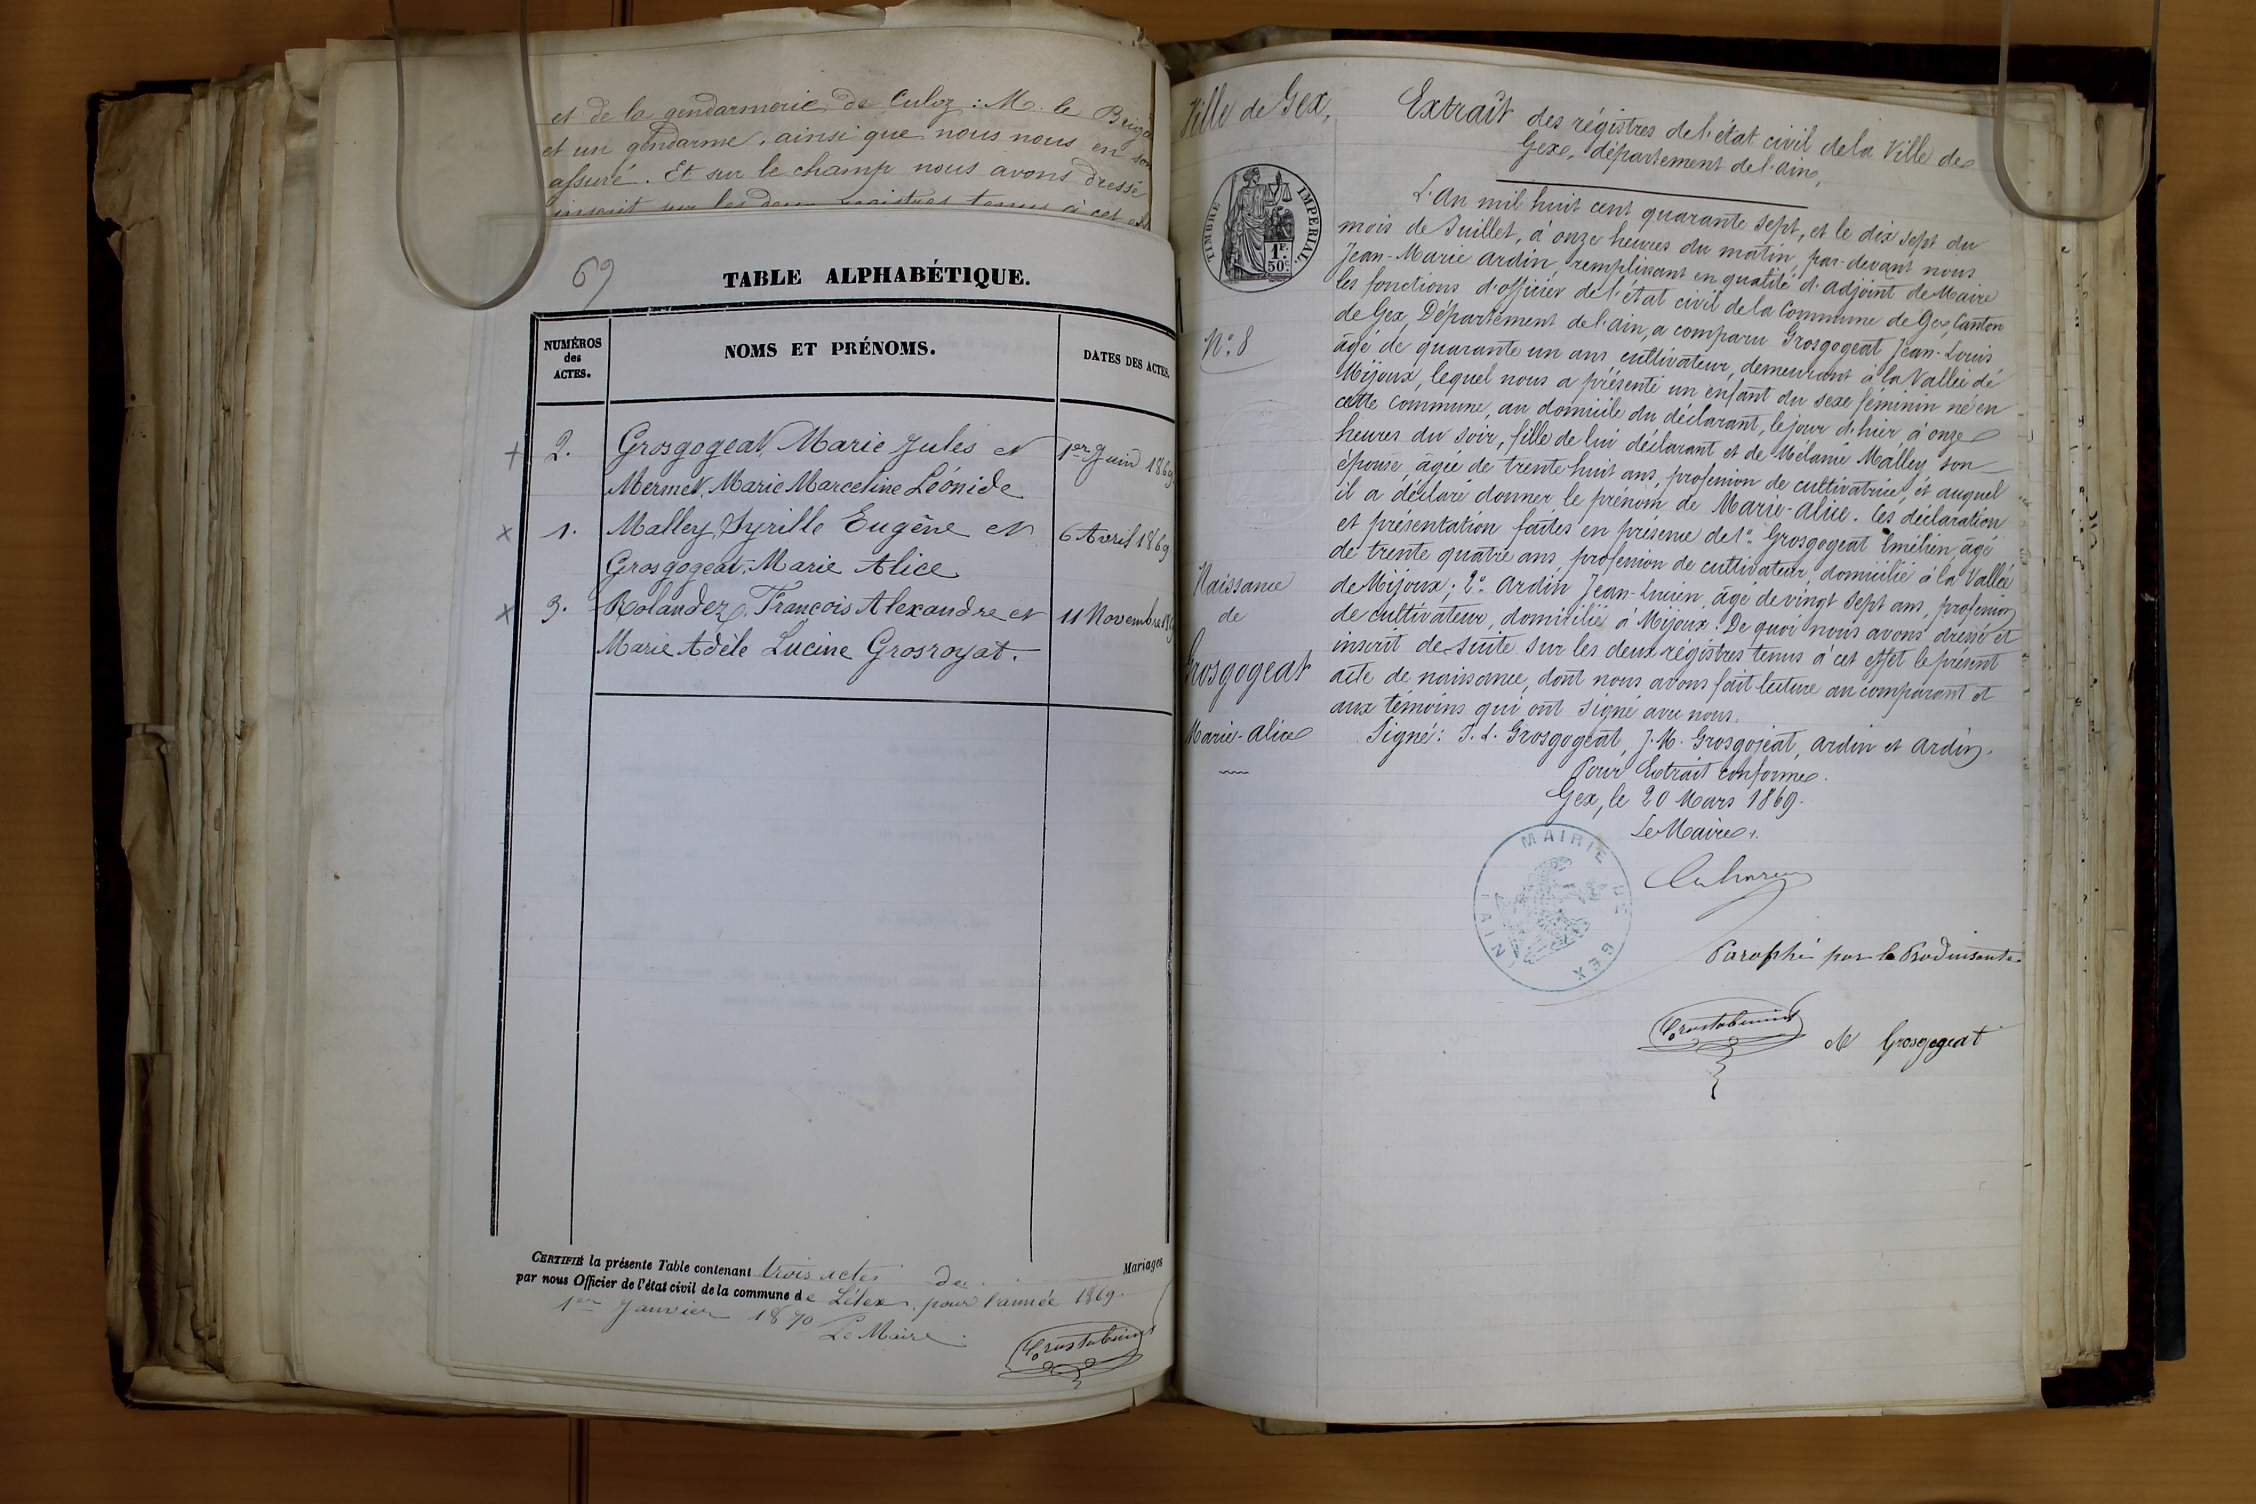 et de la gendarmerie de Culoz : M. le Brig
et un gendarme, ainsi que nous nous en som
assuré. Et sur le champ nous avons dressé
inscrit sur les deux registres tenus à cet
69
TABLE ALPHABÉTIQUE.
NUMÉROS des ACTES.
NOMS ET PRÉNOMS.
DATES DES ACTES.
+ 2. Grosgogeat, Marie Jules et 1er Juin 1869
Mermet, Marie Marceline Léonide
x 1. Malley, Syrille Eugène et 6 Avril 1869
Grosgogeat, Marie Alice
x 3. Rolandez, François Alexandre et 11 Novembre 1869
Marie Adèle Lucine Grosroyat.
CERTIFIÉ la présente Table contenant trois actes de Mariages
par nous Officier de l'état civil de la commune de Lélex, pour l'année 1869.
1er Janvier 1870
Le Maire
Ville de Gex,
TIMBRE IMPÉRIAL
1F. 50c.
N.º 8
Naissance
de
Grosgogeat
Marie-Alice
Extrait des régistres de l'état civil de la Ville de
Gex, département de l'ain,
L'an mil huit cent quarante sept, et le dix sept du
mois de Juillet, à onze heures du matin, par-devant nous
Jean-Marie Ardin, remplissant en qualité d'adjoint de Maire
les fonctions d'officier de l'état civil de la Commune de Gex, Canton
de Gex, Département de l'ain, a comparu Grosgogeat Jean-Louis
âgé de quarante un ans cultivateur, demeurant à la Vallée de
Mijoux, lequel nous a présenté un enfant du sexe féminin né en
cette commune, au domicile du déclarant, le jour d'hier à onze
heures du soir, fille de lui déclarant et de Mélanie Malley, son
épouse, âgée de trente huit ans, profession de cultivatrice, et auquel
il a déclaré donner le prénom de Marie-Alice. Ces déclaration
et présentation faites en présence de 1º Grosgogeat Emélien, âgé
de trente quatre ans, profession de cultivateur, domicilié à la Vallée
de Mijoux ; 2º Ardin Jean-Lucien, âgé de vingt sept ans, profession
de cultivateur, domicilié à Mijoux. De quoi nous avons dressé et
inscrit de suite sur les deux régistres tenus à cet effet le présent
acte de naissance, dont nous avons fait lecture au comparant et
aux témoins qui ont signé avec nous.
Signé : J. L. Grosgogeat, J. M. Grosgojeat, Ardin et Ardin.
Pour Extrait conforme.
Gex, le 20 Mars 1869.
Le Maire,
MAIRIE DE GEX (AIN)
Paraphé par la Produisante
M Grosgogeat